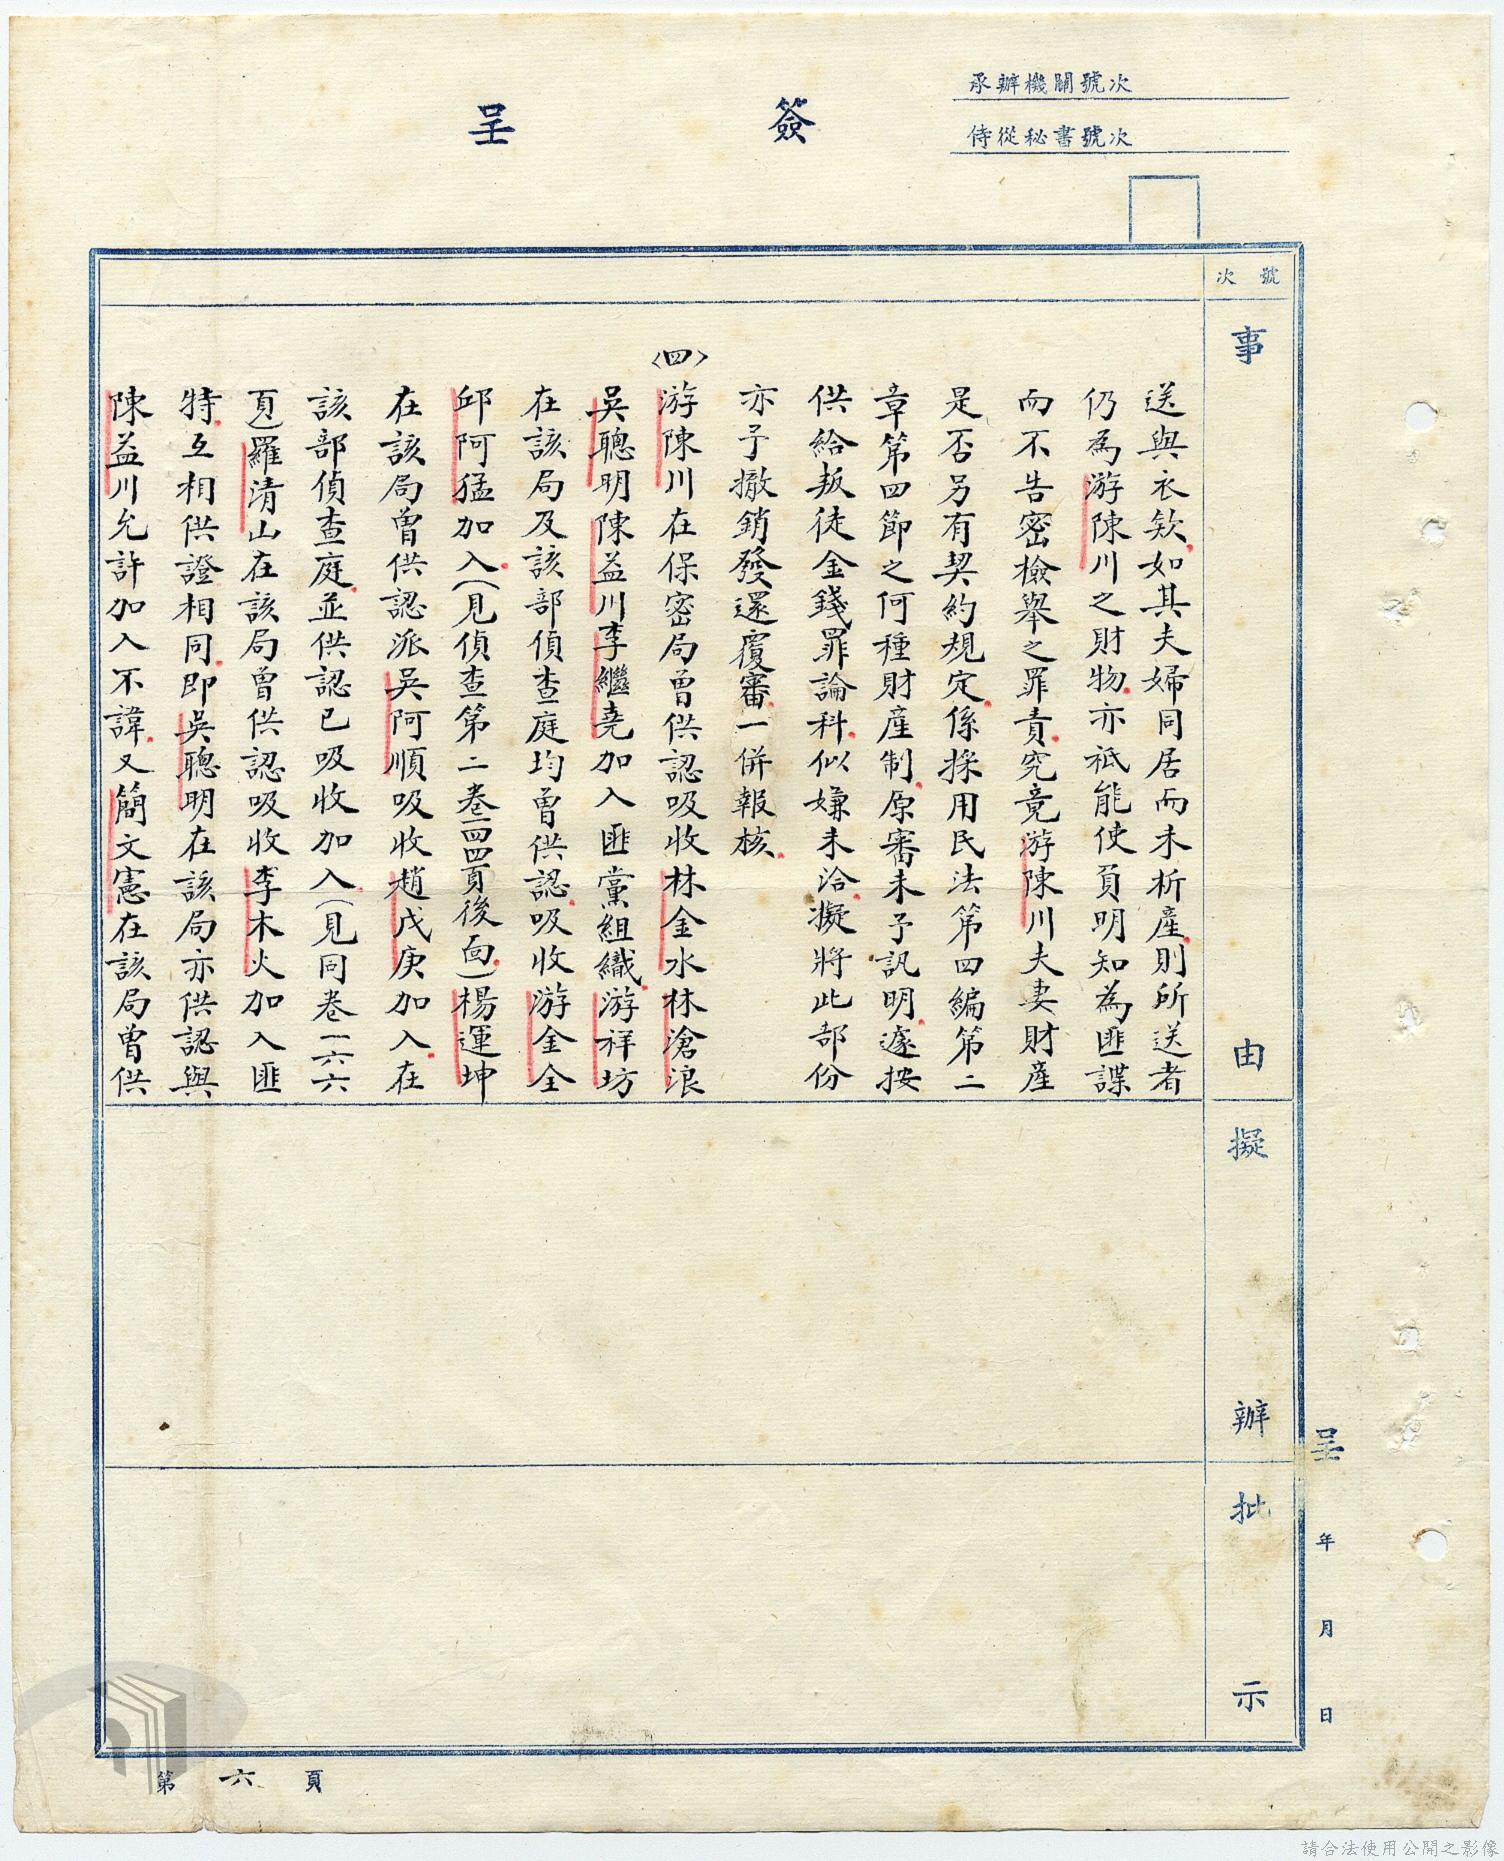 承辦機關號次
侍從秘書號次
簽呈
號次
事由
擬辦
批示
送與衣欵如其夫婦同居而未析產則所送者
仍為游陳川之財物亦祇能使負明知為匪諜
而不告密檢舉之罪責究竟游陳川夫妻財產
是否另有契約規定係採用民法第四編第二
章第四節之何種財產制原審未予訊明遽按
供給叛徒金錢罪論科似嫌未洽擬將此部份
亦予撤銷發還覆審一併報核
〈四〉游陳川在保密局曾供認吸收林金水林滄浪
吳聰明陳益川李繼堯加入匪黨組織游祥坊
在該局及該部偵查庭均曾供認吸收游金全
邱阿猛加入(見偵查第二卷一四四頁後面)楊運坤
在該局曾供認派吳阿順吸收趙戊庚加入在
該部偵查庭並供認已吸收加入(見同卷一六六
頁)羅清山在該局曾供認吸收李木火加入匪
特互相供證相同即吳聰明在該局亦供認與
陳益川允許加入不諱又簡文憲在該局曾供
呈 年 月 日
第六頁
請合法使用公開之影像